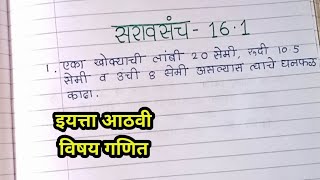 सरावसंच - 16.1
1. एका खोक्याची लांबी 20 सेमी, रुंदी 10.5
सेमी व उंची 8 सेमी असल्यास त्याचे घनफळ
काढा.
इयत्ता आठवी
विषय गणित